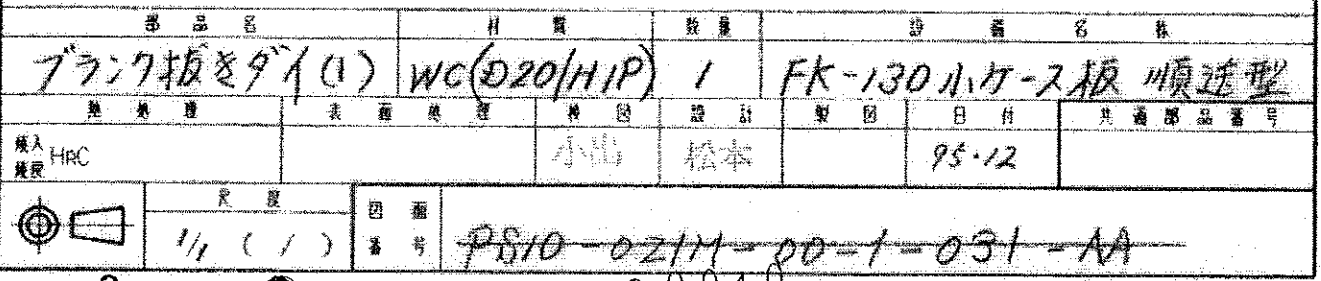 部品名 材質 数量 設備名称
ブランク抜きダイ(1) WC(D20/HIP) 1 FK-130小ケース板 順送型
熱処理 表面処理 検図 設計 製図 日付 共通部品番号
焼入 HRC 小出 松本 95・12
焼戻
尺度 図面
1/1 ( / ) 番号 PS10-021M-00-1-031-AA